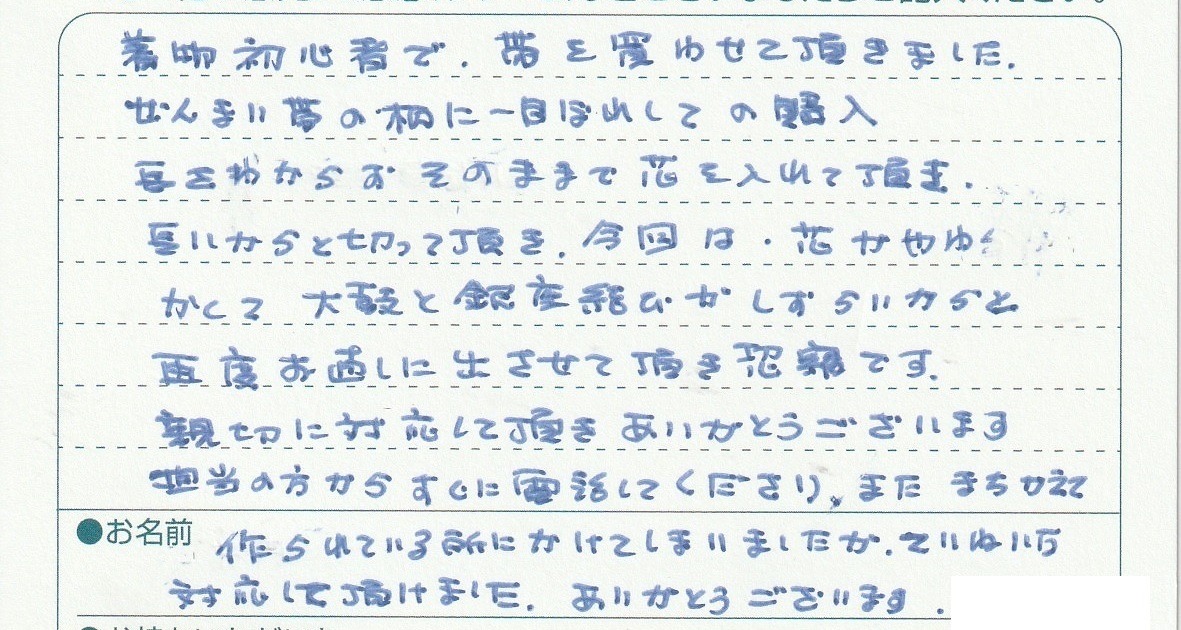 着物初心者で、帯を買わせて頂きました。
ぜんまい帯の柄に一目ぼれしての購入
長さわからず そのままで 芯を入れて頂き、
長いからと切って頂き、今回は、芯がやわら
かくて 太鼓と銀座結びが しずらいからと
再度お直しに出させて頂き恐縮です。
親切に対応して頂きありがとうございます
担当の方からすぐに電話してくださり、また まちがえて
●お名前
作られている所にかけてしまいましたが、ていねいな
対応して頂けました。ありがとうございます。